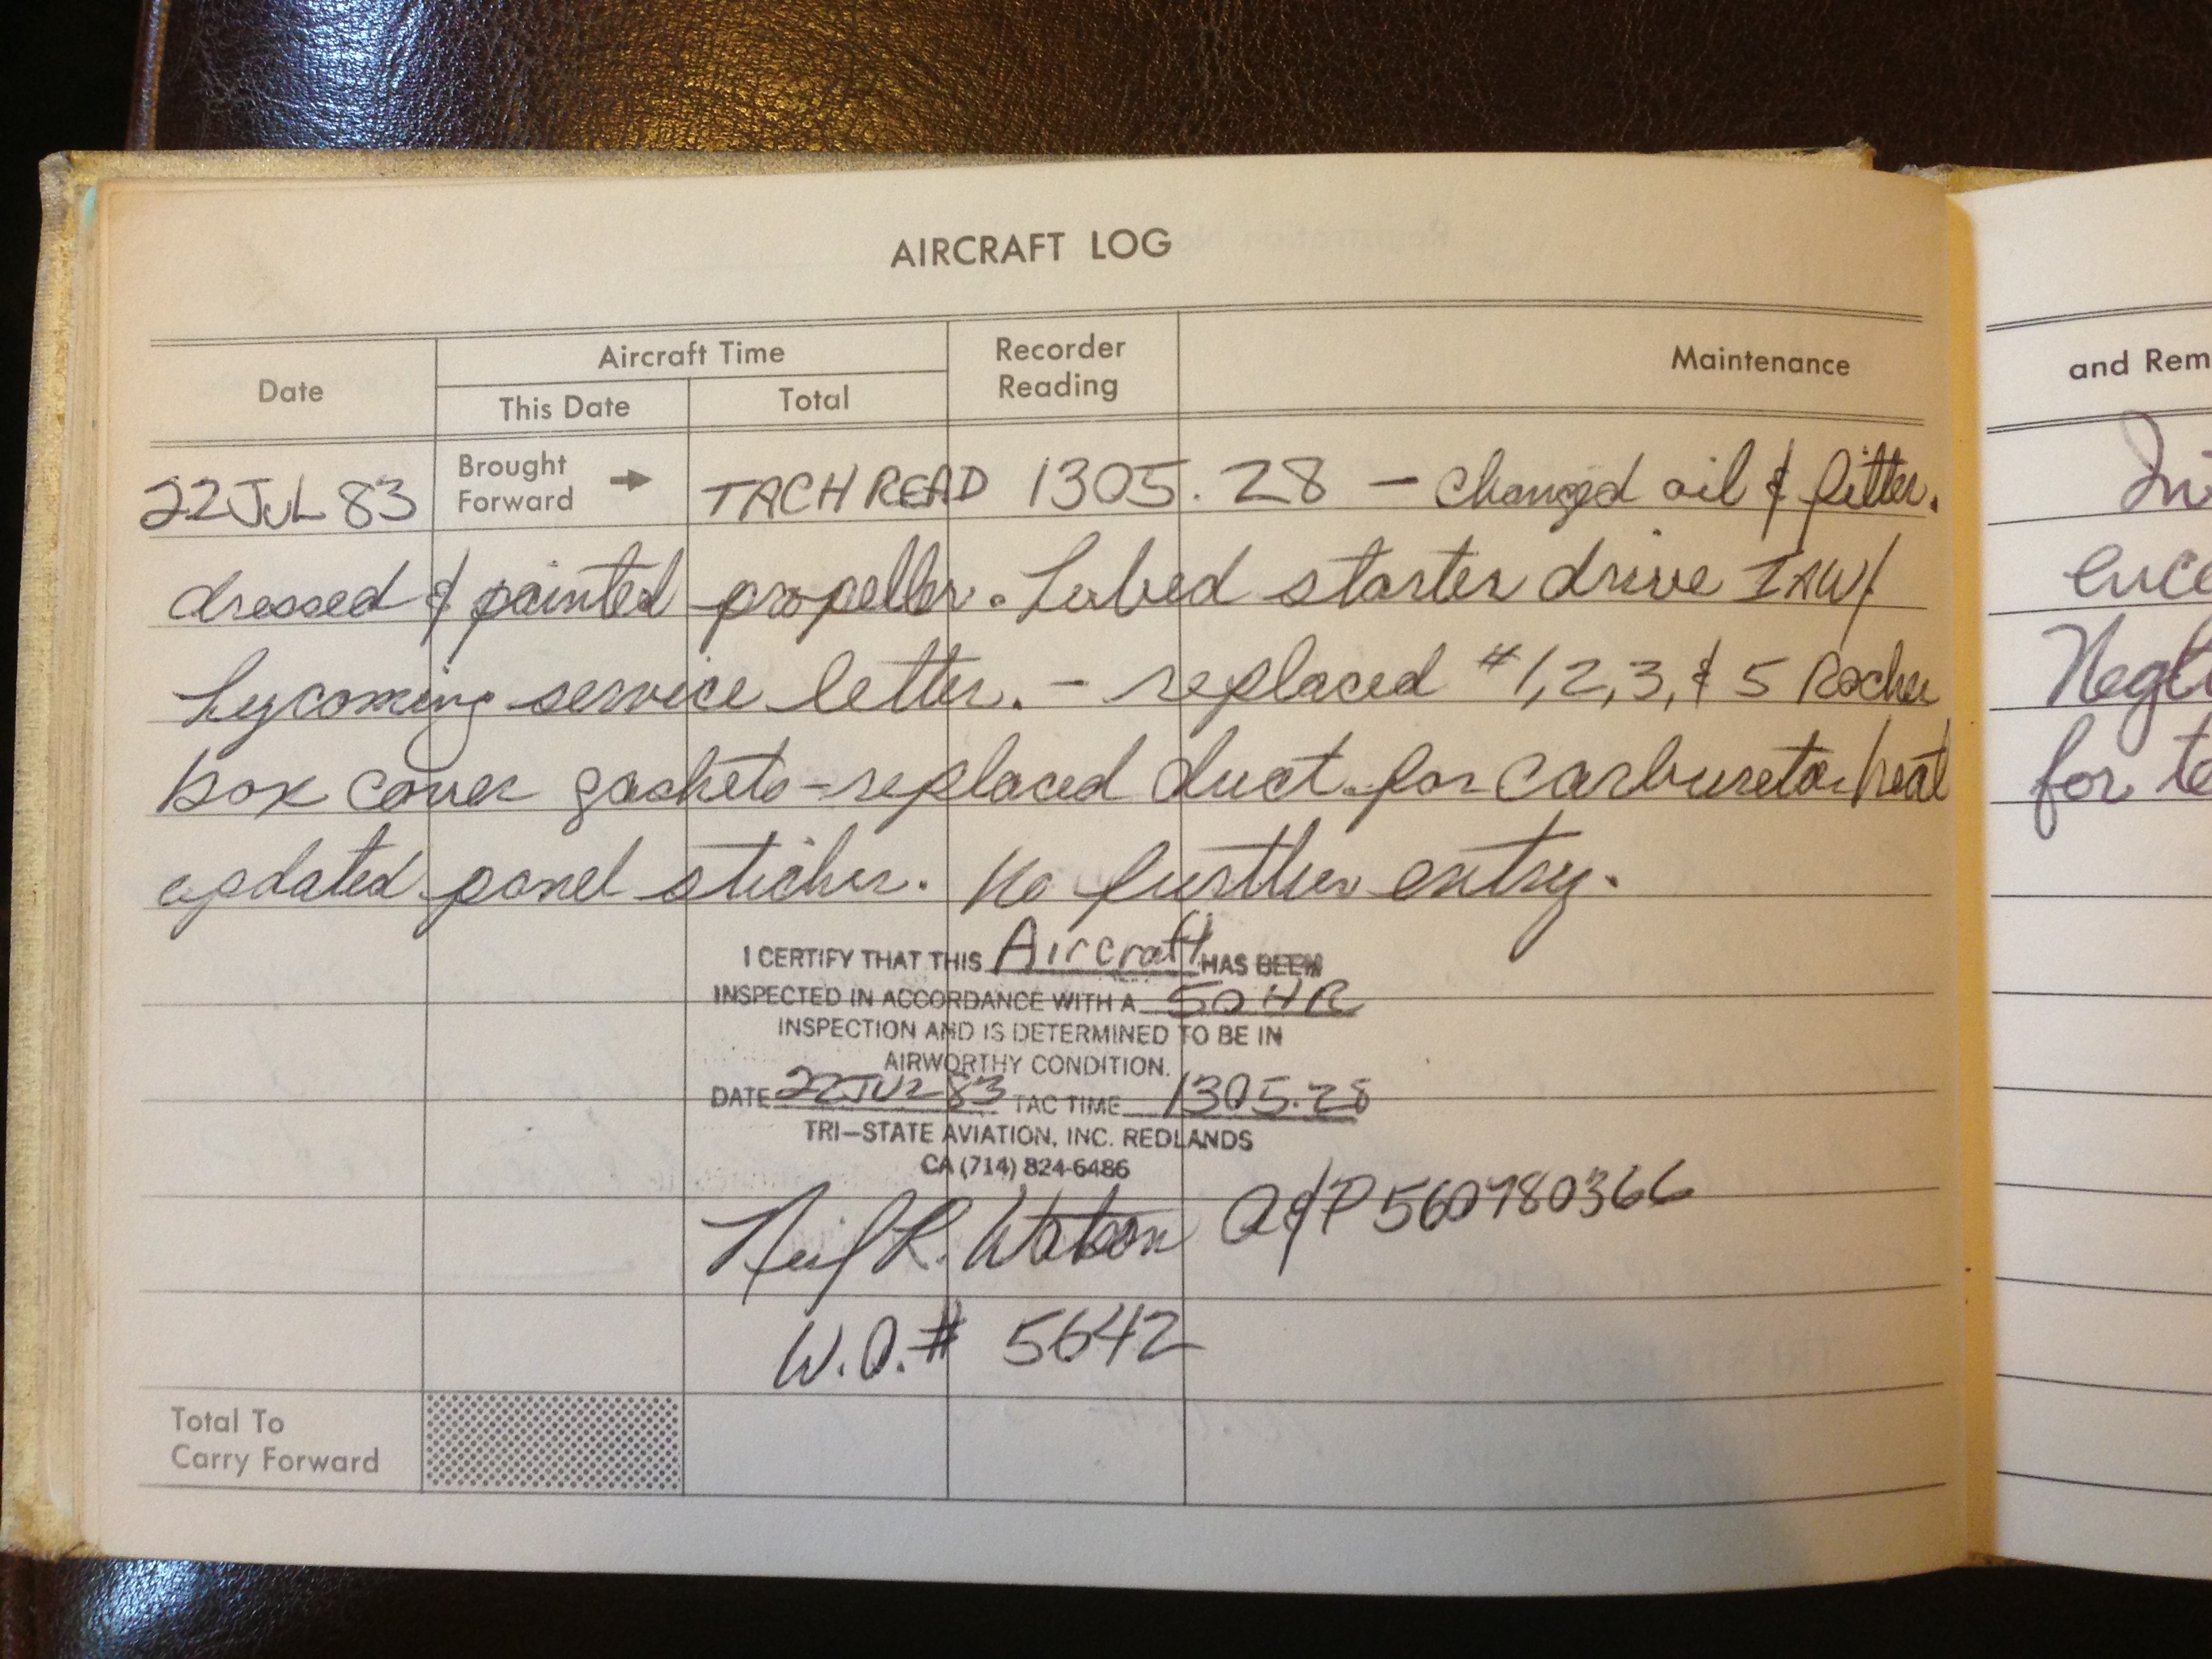 AIRCRAFT LOG
Date
Aircraft Time
This Date
Total
Recorder
Reading
Maintenance
and Rem
22 JUL 83 Brought Forward → TACH READ 1305.28 – changed oil & filter.
dressed & painted propeller. Lubed starter drive IAW/
Lycoming service letter. – replaced #1,2,3, & 5 Rocker
box cover gaskets – replaced duct for carburetor heat
updated panel sticker. No further entry.
I CERTIFY THAT THIS Aircraft HAS BEEN
INSPECTED IN ACCORDANCE WITH A 50 HR
INSPECTION AND IS DETERMINED TO BE IN
AIRWORTHY CONDITION.
DATE 22 JUL 83 TAC TIME 1305.28
TRI-STATE AVIATION, INC. REDLANDS
CA (714) 824-6486
Neil R. Watson A&P 560780366
W.O.# 5642
Total To
Carry Forward
ence
for te